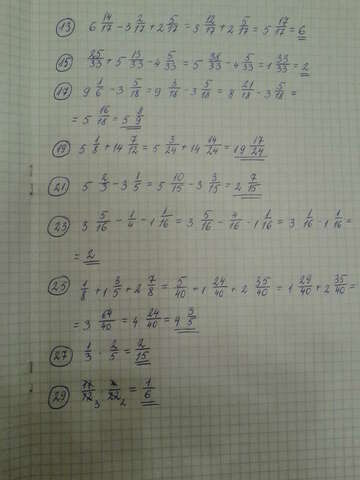 13 6 14/17 - 3 2/17 + 2 5/17 = 3 12/17 + 2 5/17 = 5 17/17 = 6
15 25/33 + 5 13/33 - 4 5/33 = 5 38/33 - 4 5/33 = 1 33/33 = 2
17 9 1/6 - 3 5/18 = 9 3/18 - 3 5/18 = 8 21/18 - 3 5/18 =
= 5 16/18 = 5 8/9
19 5 1/8 + 14 7/12 = 5 3/24 + 14 14/24 = 19 17/24
21 5 2/3 - 3 1/5 = 5 10/15 - 3 3/15 = 2 7/15
23 3 5/16 - 1/4 - 1 1/16 = 3 5/16 - 4/16 - 1 1/16 = 3 1/16 - 1 1/16 =
= 2
25 1/8 + 1 3/5 + 2 7/8 = 5/40 + 1 24/40 + 2 35/40 = 1 29/40 + 2 35/40 =
= 3 64/40 = 4 24/40 = 4 3/5
27 1/3 · 2/5 = 2/15
29 3 2 = 1/6